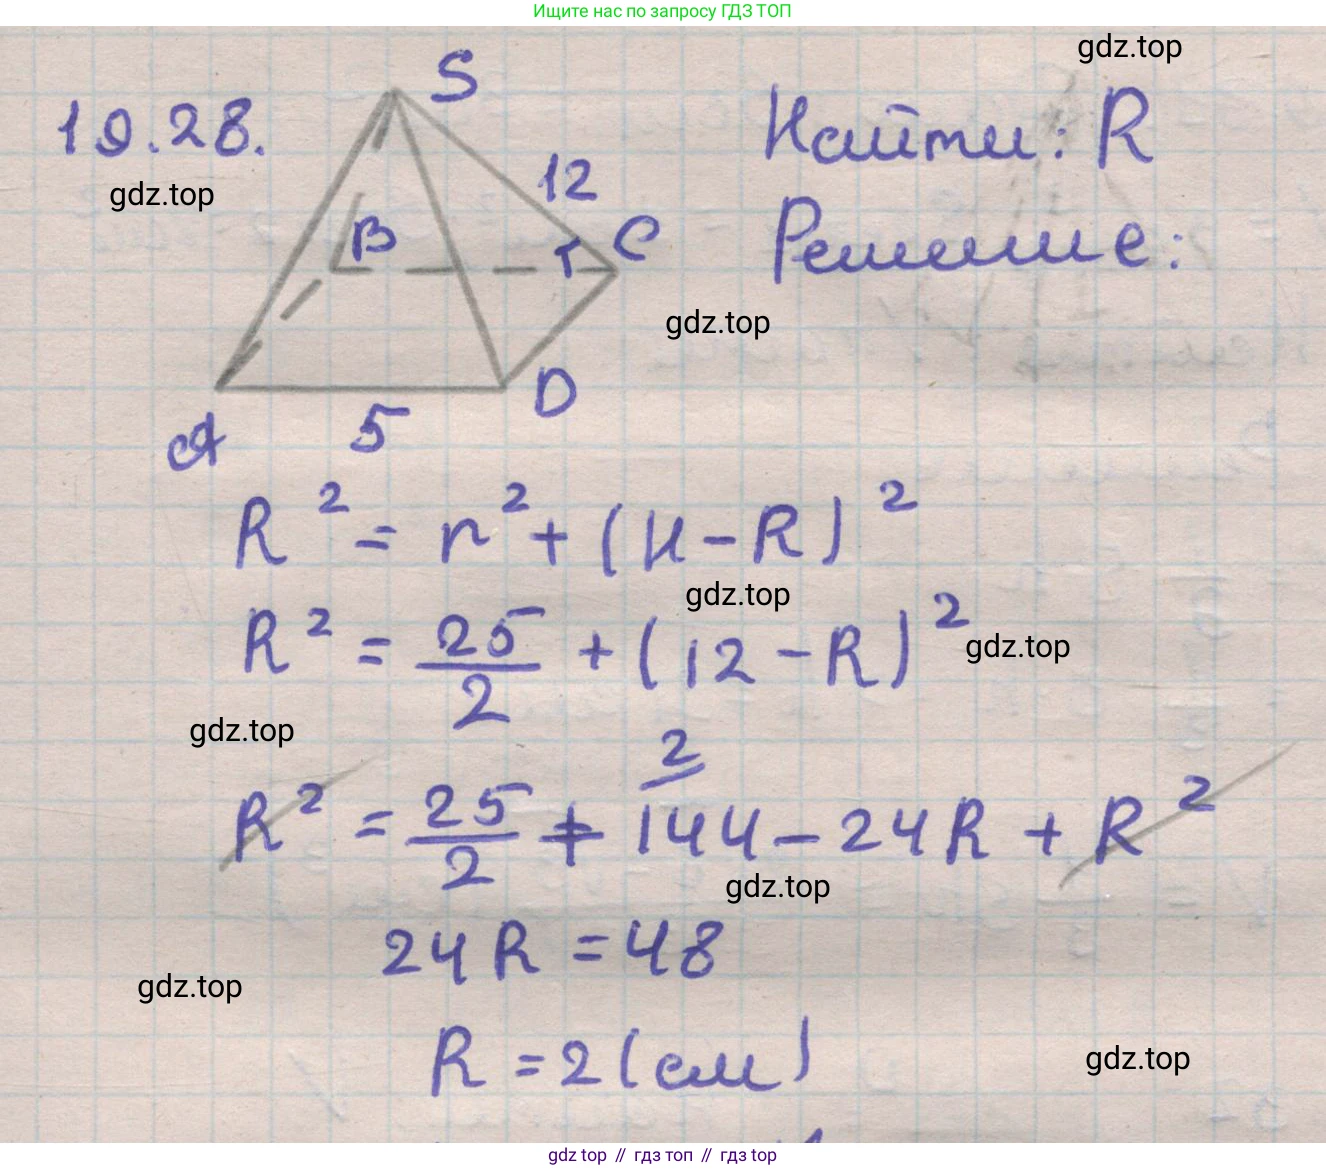 Ищите нас по запросу ГДЗ ТОП
gdz.top
19.28.
S
Найти: R
gdz.top
12
B
C
Решение:
gdz.top
A
5
D
R² = r² + (H - R)²
gdz.top
R² = 25/2 + (12 - R)²
gdz.top
gdz.top
2
R² = 25/2 + 144 - 24R + R²
gdz.top
24R = 48
gdz.top
R = 2 (см)
gdz.top
gdz top // гдз топ // гдз top